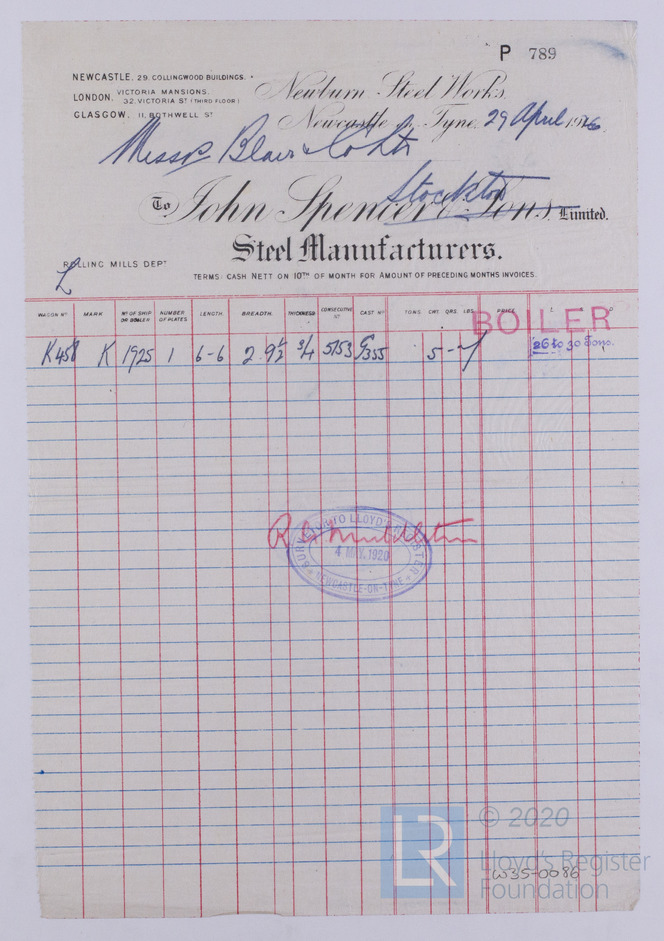 P 789
NEWCASTLE. 29. COLLINGWOOD BUILDINGS.
LONDON. VICTORIA MANSIONS.
32. VICTORIA ST (THIRD FLOOR)
GLASGOW, 11, BOTHWELL ST
Newburn Steel Works,
Newcastle on Tyne, 29 April 1920
Messrs Blair & Co Ltd
Stockton
To John Spencer & Sons, Limited.
Steel Manufacturers.
ROLLING MILLS DEPT
L
TERMS: CASH NETT ON 10TH OF MONTH FOR AMOUNT OF PRECEDING MONTHS INVOICES.
WAGON NO MARK NO OF SHIP OR BOILER NUMBER OF PLATES LENGTH BREADTH. THICKNESS CONSECUTIVE NO CAST NO TONS CWT. QRS. LBS. PRICE £ D
BOILER
26 to 30 Tons.
K458 K 1925 1 6-6 2 9½ ¾ 5153 G355 5 - 7
R. S. Middleton
SURVEYOR TO LLOYD'S REGISTER
4 MAY. 1920
NEWCASTLE-ON-TYNE
LR
© 2020
Lloyd's Register
Foundation
W35-0086